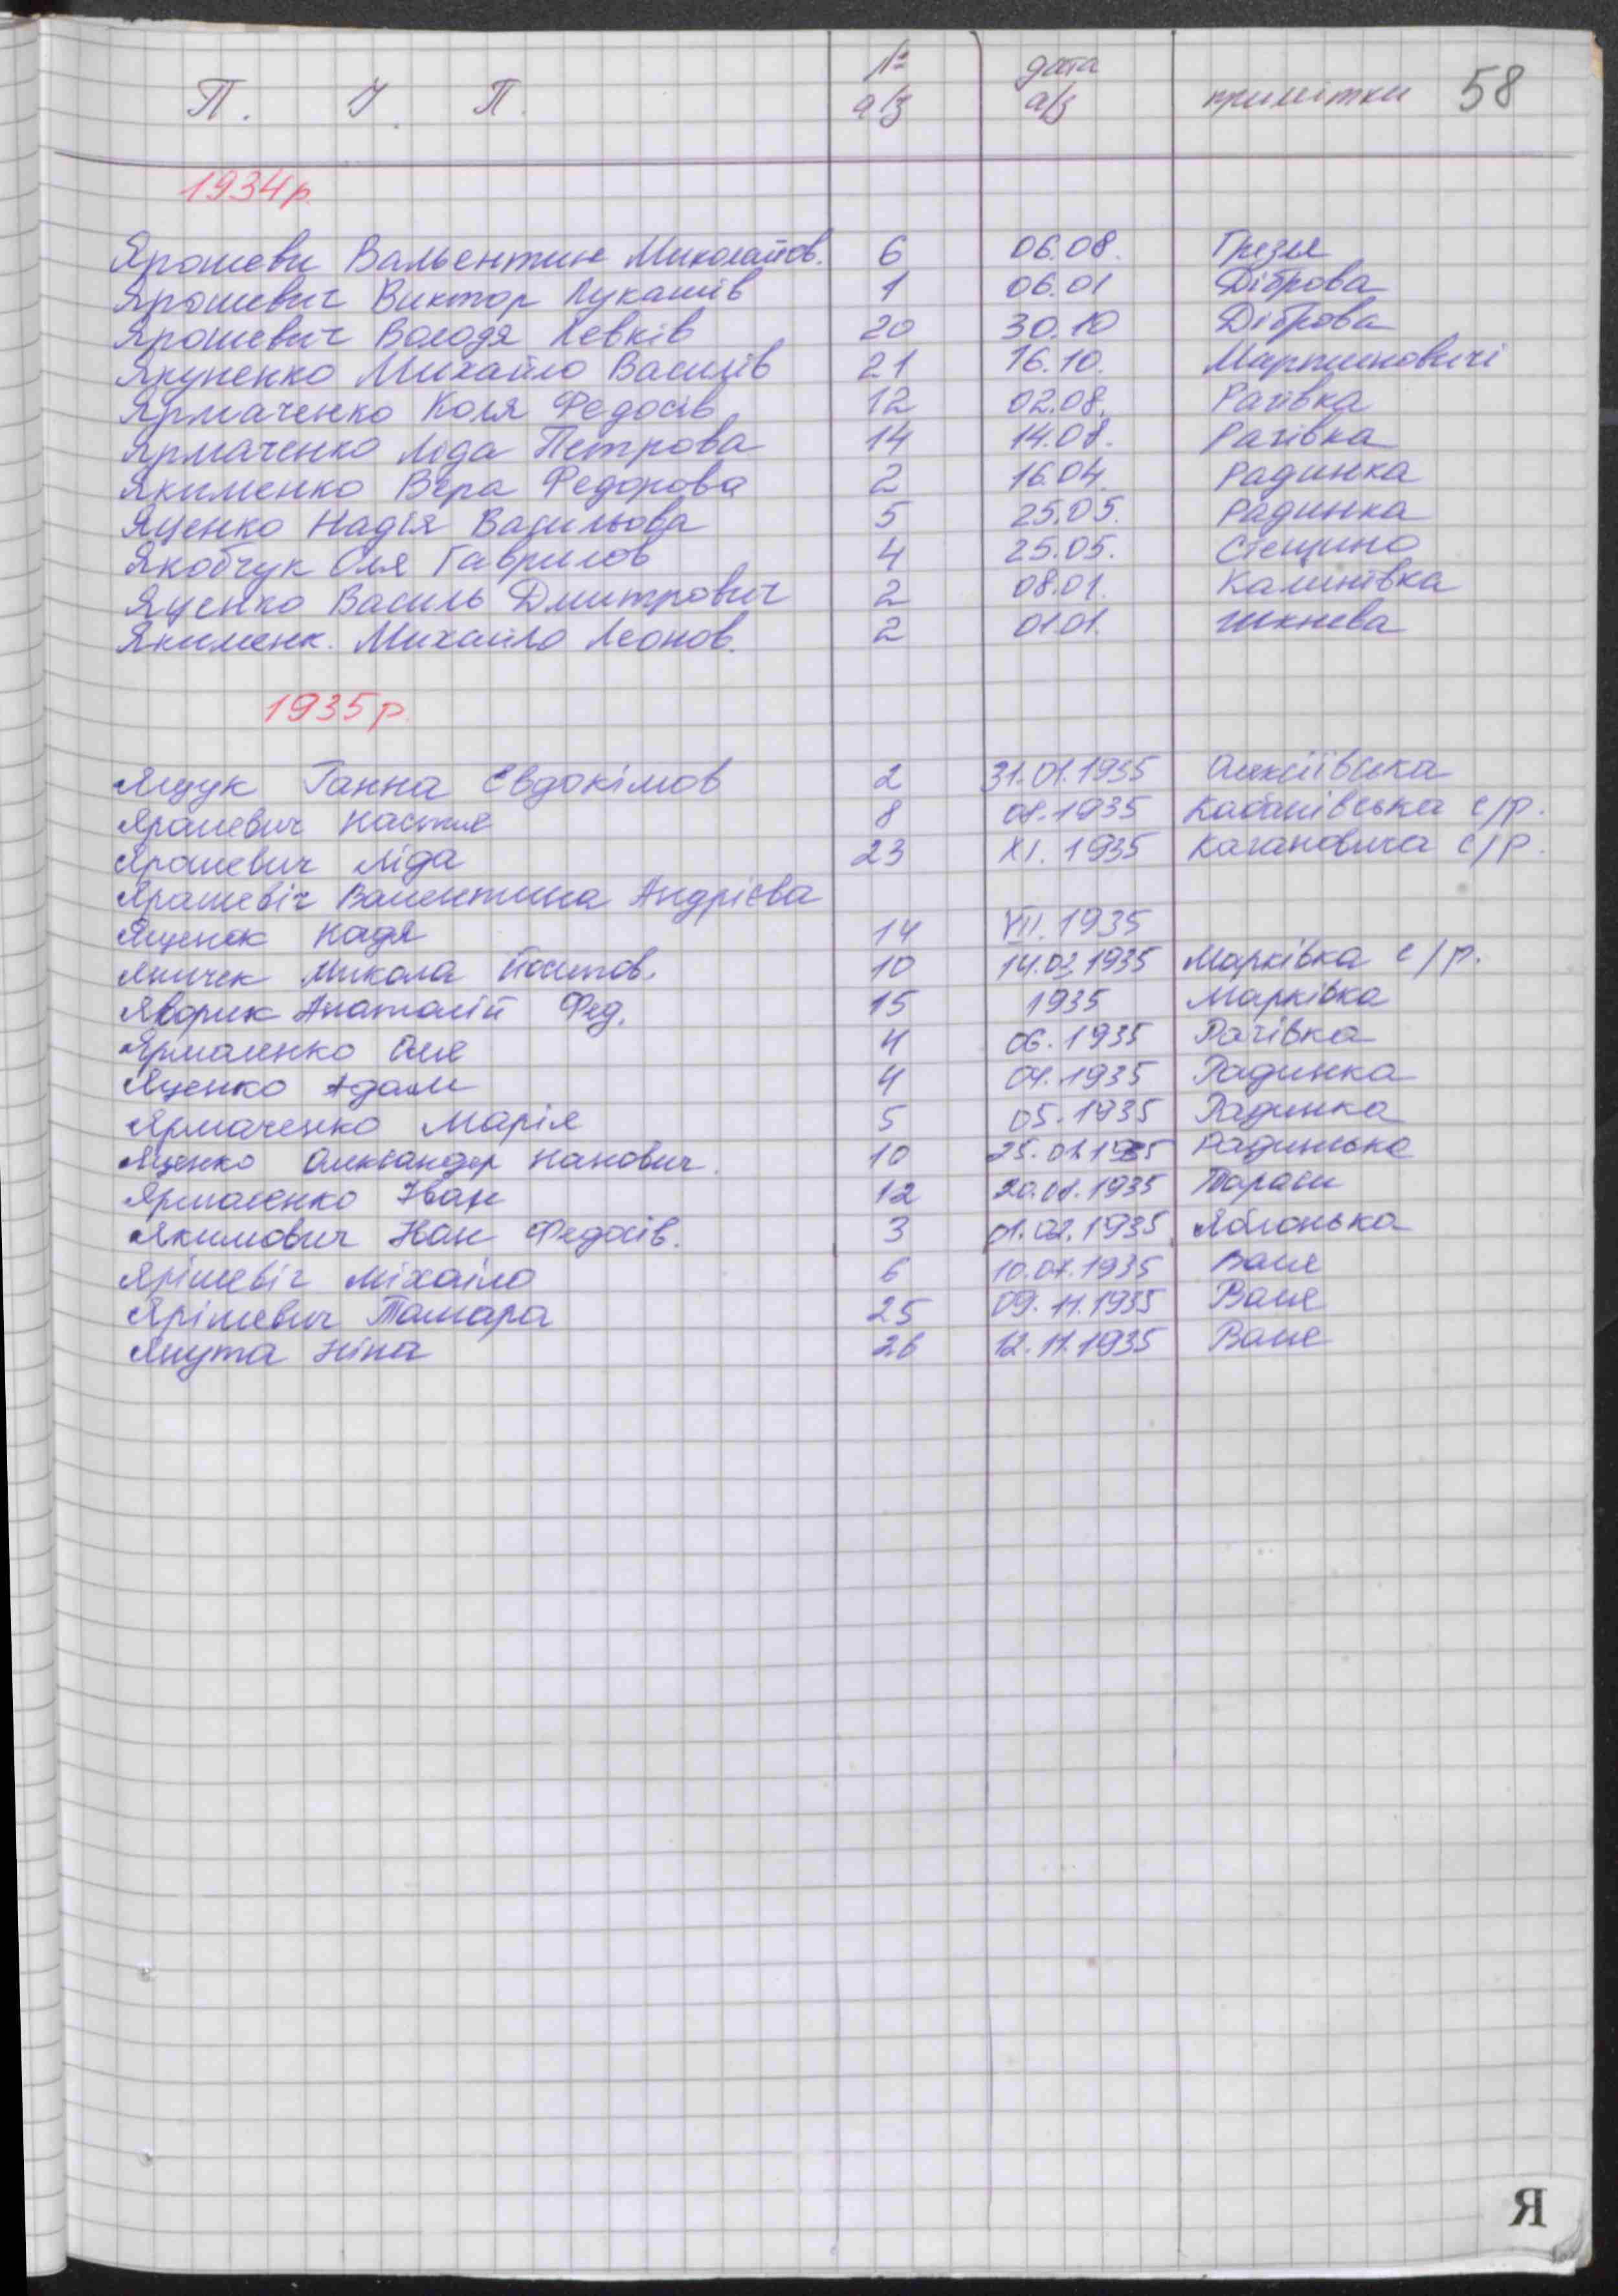 П. І. П. № а/з дата а/з примітки 58
1934 р.
Ярошеви Вальентине Миколайов. 6 06.08. Грезля
Ярошевич Виктор Лукашів 1 06.01 Діброва
Ярошевич Володя Левків 20 30.10 Діброва
Якуненко Михайло Василів 21 16.10. Мартиновичі
Ярмаченко Коля Федосів 12 02.08. Рагівка
Ярмаченко Ліда Петрова 14 14.08. Рагівка
Якименко Вера Федорова 2 16.04. Радинка
Яценко Надія Васильова 5 25.05. Радинка
Якобчук Оля Гаврилов 4 25.05. Стещино
Яценко Василь Дмитрович 2 08.01. Калинівка
Якименк. Михайло Леонов. 2 01.01.
1935 р.
Ящук Ганна Євдокімов 2 31.01.1935 Алексіївська
Ярошевич Настя 8 08.1935 Кабанівська с/р.
Ярошевич Ліда 23 XI. 1935 Кагановича с/р.
Ярашевіч Валентина Андрієва
Яценок Надя 14 VII. 1935
Яничек Микола Йосипов. 10 14.03.1935 Марківка с/р.
Яворик Анатолій Фед. 15 1935 Марківка
Ярмаленко Оля 4 06.1935 Рагівка
Яценко Адам 4 04.1935 Радинка
Ярмаченко Марія 5 05.1935 Радинка
Яценко Александер Нанович. 10 1935 Радинька
Ярмаленко Іван 12 20.08.1935 Тараси
Якимович Нан Федосів. 3 01.02.1935 Яблонька
Ярішевіч Міхаіло 6 10.04.1935 Валя
Ярішевич Тамара 25 09.11.1935 Валя
Янута Ніна 26 12.11.1935 Валя
Я